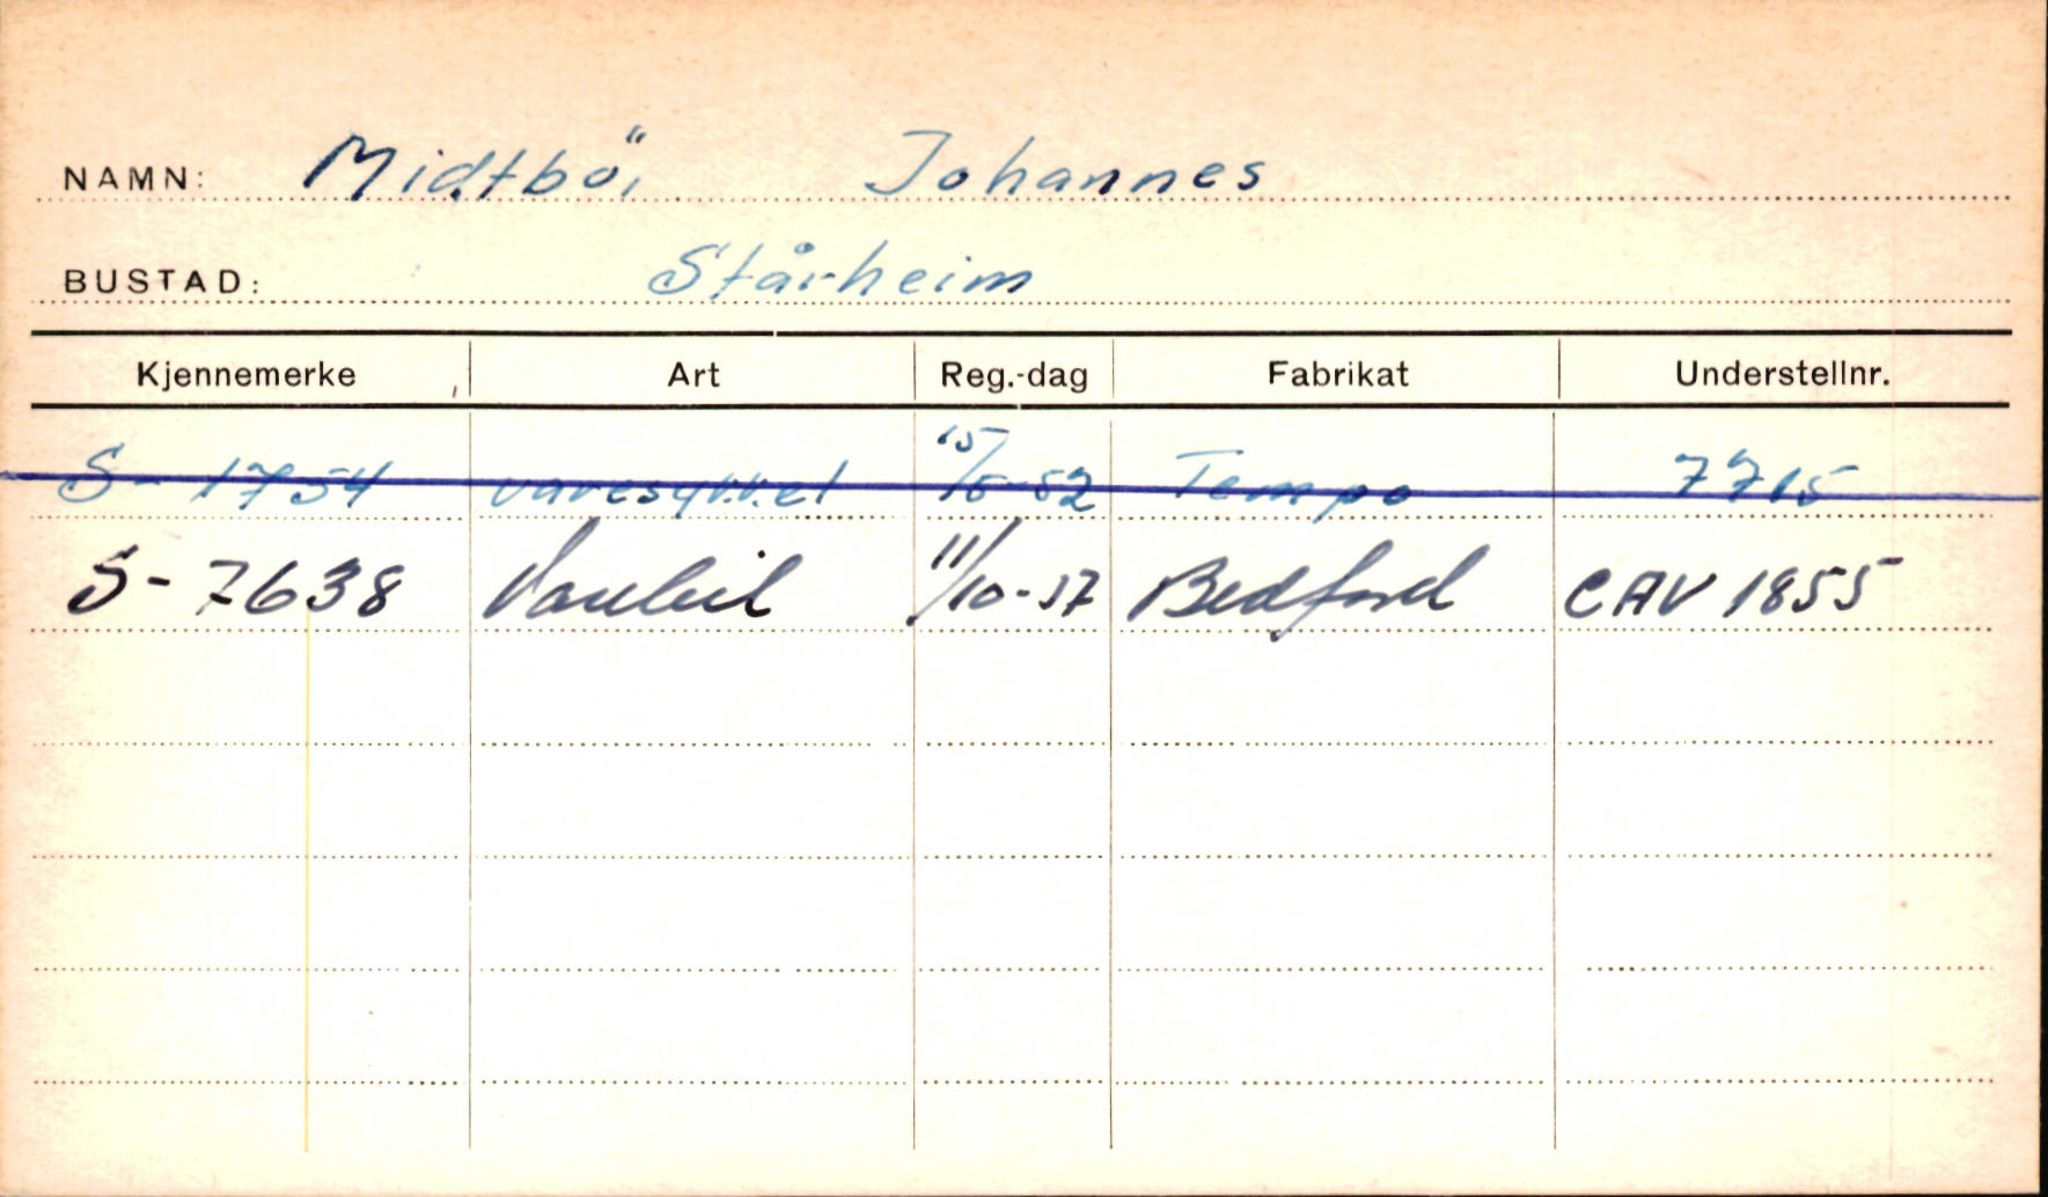 NAMN: Midtbö, Johannes
BUSTAD: Stårheim
Kjennemerke Art Reg.-dag Fabrikat Understellnr.
S- 1754 varesykkel 15/5-52 Tempo 7715
S- 7638 Varebil 11/10-57 Bedford CAV 1855